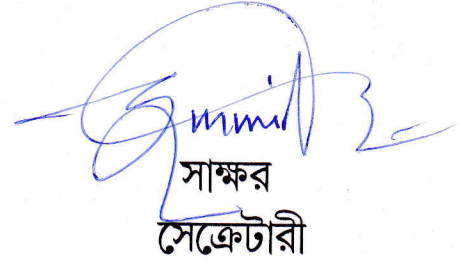 সাক্ষর
সেক্রেটারী